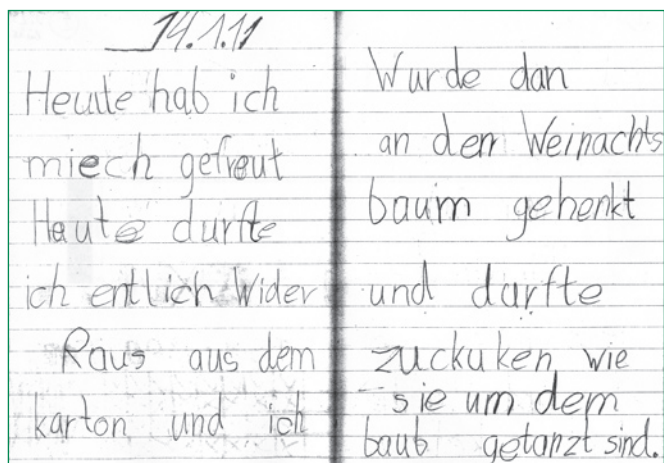 14.1.11
Heute hab ich
miech gefreut
Heute durfte
ich entlich Wider
Raus aus dem
karton und ich
Wurde dan
an den Weinachts
baum gehenkt
und durfte
zuckuken wie
sie um dem
baub getanzt sind.